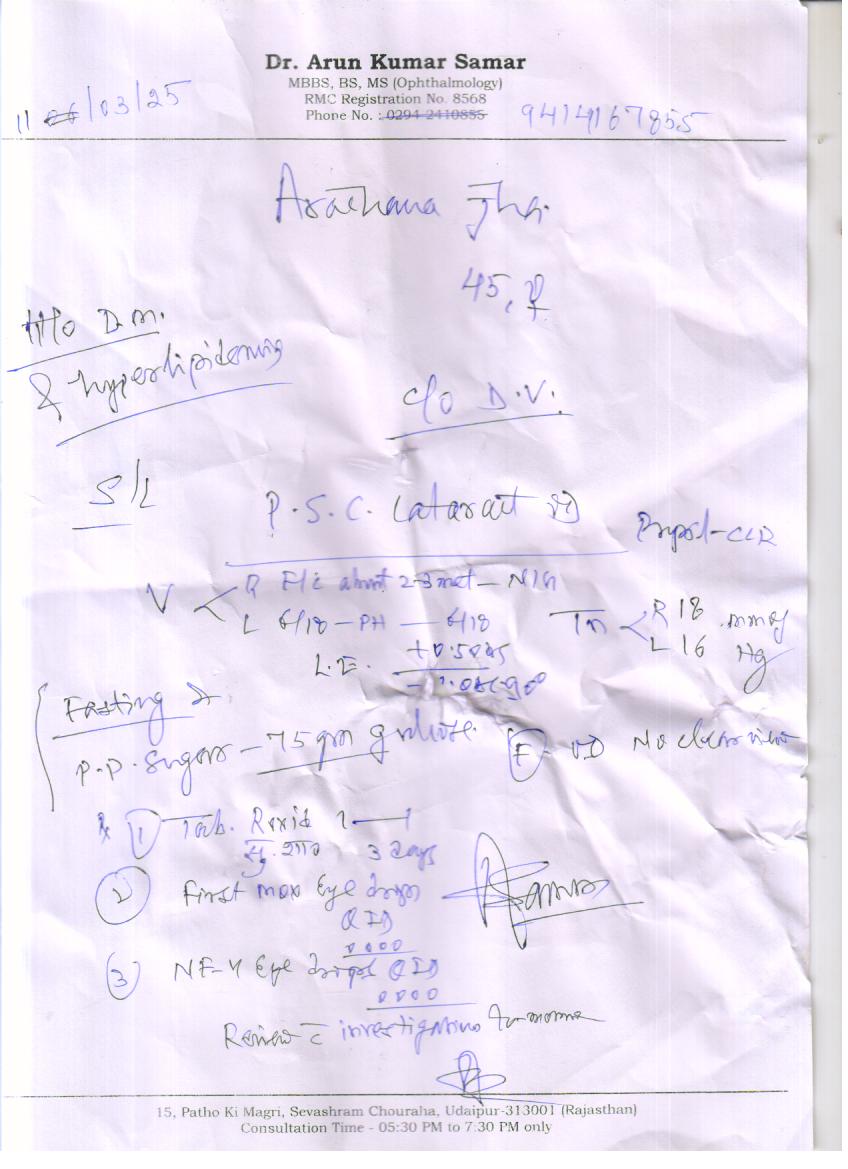 Dr. Arun Kumar Samar
MBBS, BS, MS (Ophthalmology)
RMC Registration No. 8568
Phone No. : 0294-2410855 94141 67855
11/03/25
Arachana Jha.
45, F
H/o D.M.
& hyperlipidemia
c/o D.V.
S/L
P.S.C. Cataract
V < R F/c about 2-3 met - N/G
L 6/18 - PH - 6/18
Tn < R 18 mmg
L 16 Hg
L.E. +0.50DS
Fasting &
P.P. Sugar - 75 gm glucose.
F No clear view
Rx 1 Tab. 1 - 1
सु. शा० 3 days
2 First mox Eye drops
QID
0000
3 NF-4 Eye drops QID
0000
Review c investigations tomorrow
15, Patho Ki Magri, Sevashram Chouraha, Udaipur-313001 (Rajasthan)
Consultation Time - 05:30 PM to 7:30 PM only